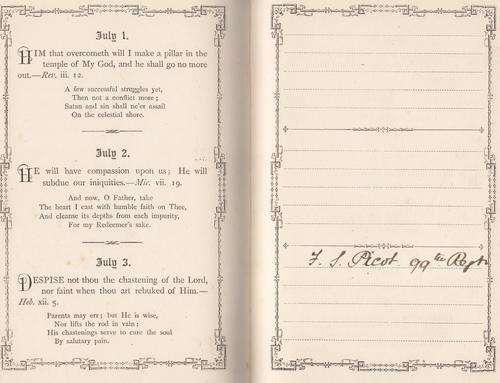 July 1.
HIM that overcometh will I make a pillar in the
temple of My God, and he shall go no more
out.—Rev. iii. 12.
A few successful struggles yet,
Then not a conflict more;
Satan and sin shall ne'er assail
On the celestial shore.
July 2.
HE will have compassion upon us; He will
subdue our iniquities.—Mic. vii. 19.
And now, O Father, take
The heart I cast with humble faith on Thee,
And cleanse its depths from each impurity,
For my Redeemer's sake.
July 3.
DESPISE not thou the chastening of the Lord,
nor faint when thou art rebuked of Him.—
Heb. xii. 5.
Parents may err; but He is wise,
Nor lifts the rod in vain;
His chastenings serve to cure the soul
By salutary pain.
F. S. Picot 99th Regt